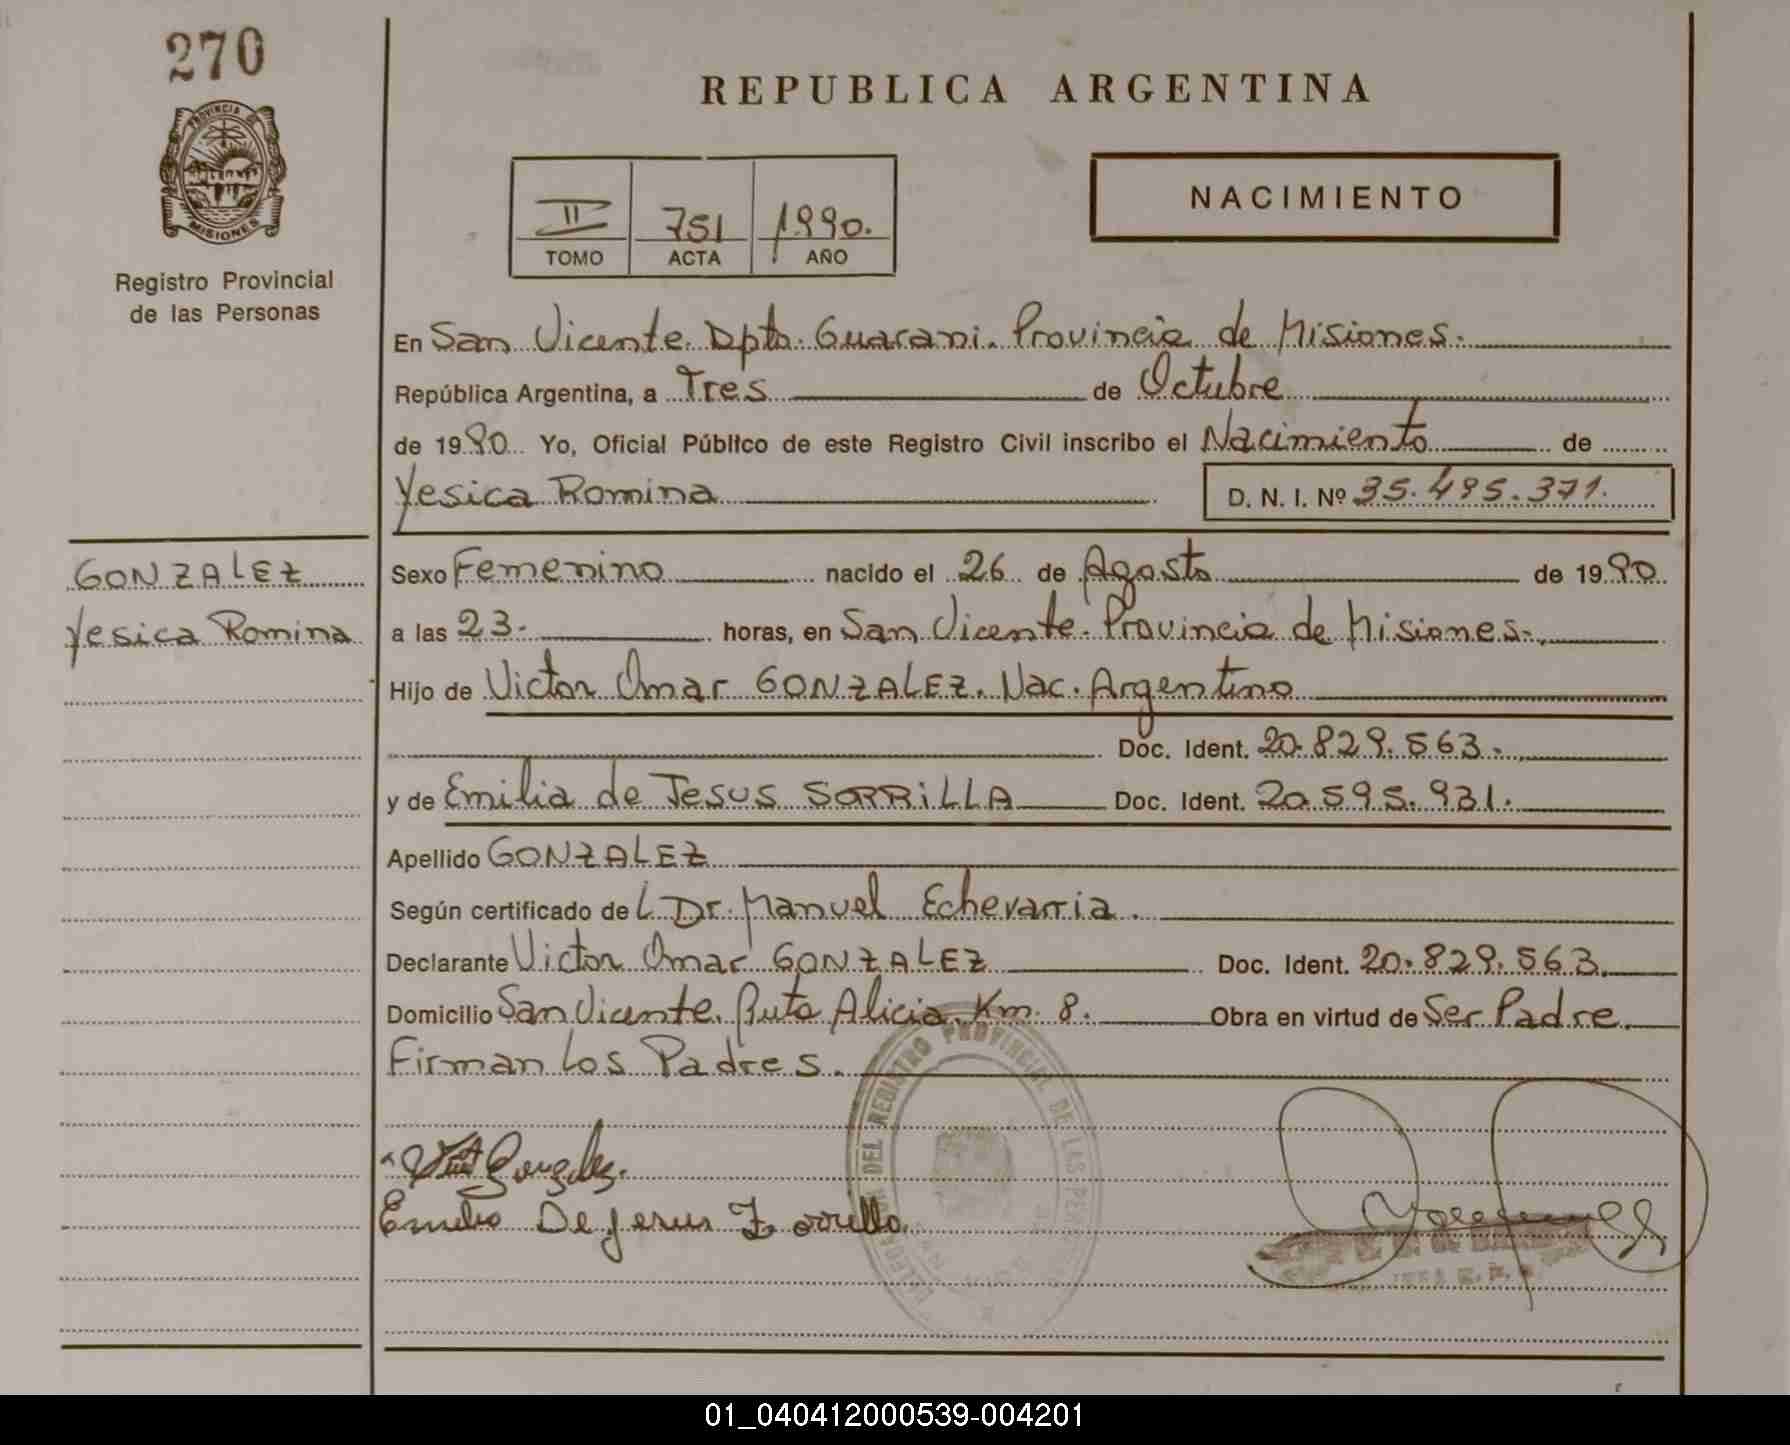 270
PROVINCIA DE
MISIONES
Registro Provincial
de las Personas
REPUBLICA ARGENTINA
II 751 1990.
TOMO ACTA AÑO
NACIMIENTO
En San Vicente. Dpto. Guarani. Provincia de Misiones.
República Argentina, a Tres de Octubre
de 1990 Yo, Oficial Público de este Registro Civil inscribo el Nacimiento de
Yesica Romina D. N. I. Nº 35.495.371.
GONZALEZ
Yesica Romina
Sexo Femenino nacido el 26 de Agosto de 1990
a las 23. horas, en San Vicente. Provincia de Misiones.
Hijo de Victor Omar GONZALEZ. Nac. Argentino
Doc. Ident. 20.829.563.
y de Emilia de Jesus SORRILLA Doc. Ident. 20.595.931.
Apellido GONZALEZ
Según certificado de L. Dr. Manuel Echevarria.
Declarante Victor Omar GONZALEZ Doc. Ident. 20.829.563.
Domicilio San Vicente. Ruta Alicia. Km. 8. Obra en virtud de Ser Padre.
Firman Los Padres.
DEL REGISTRO PROVINCIAL DE LAS
Gonzalez.
Emilia De Jesus Zorrilla.
01_040412000539-004201